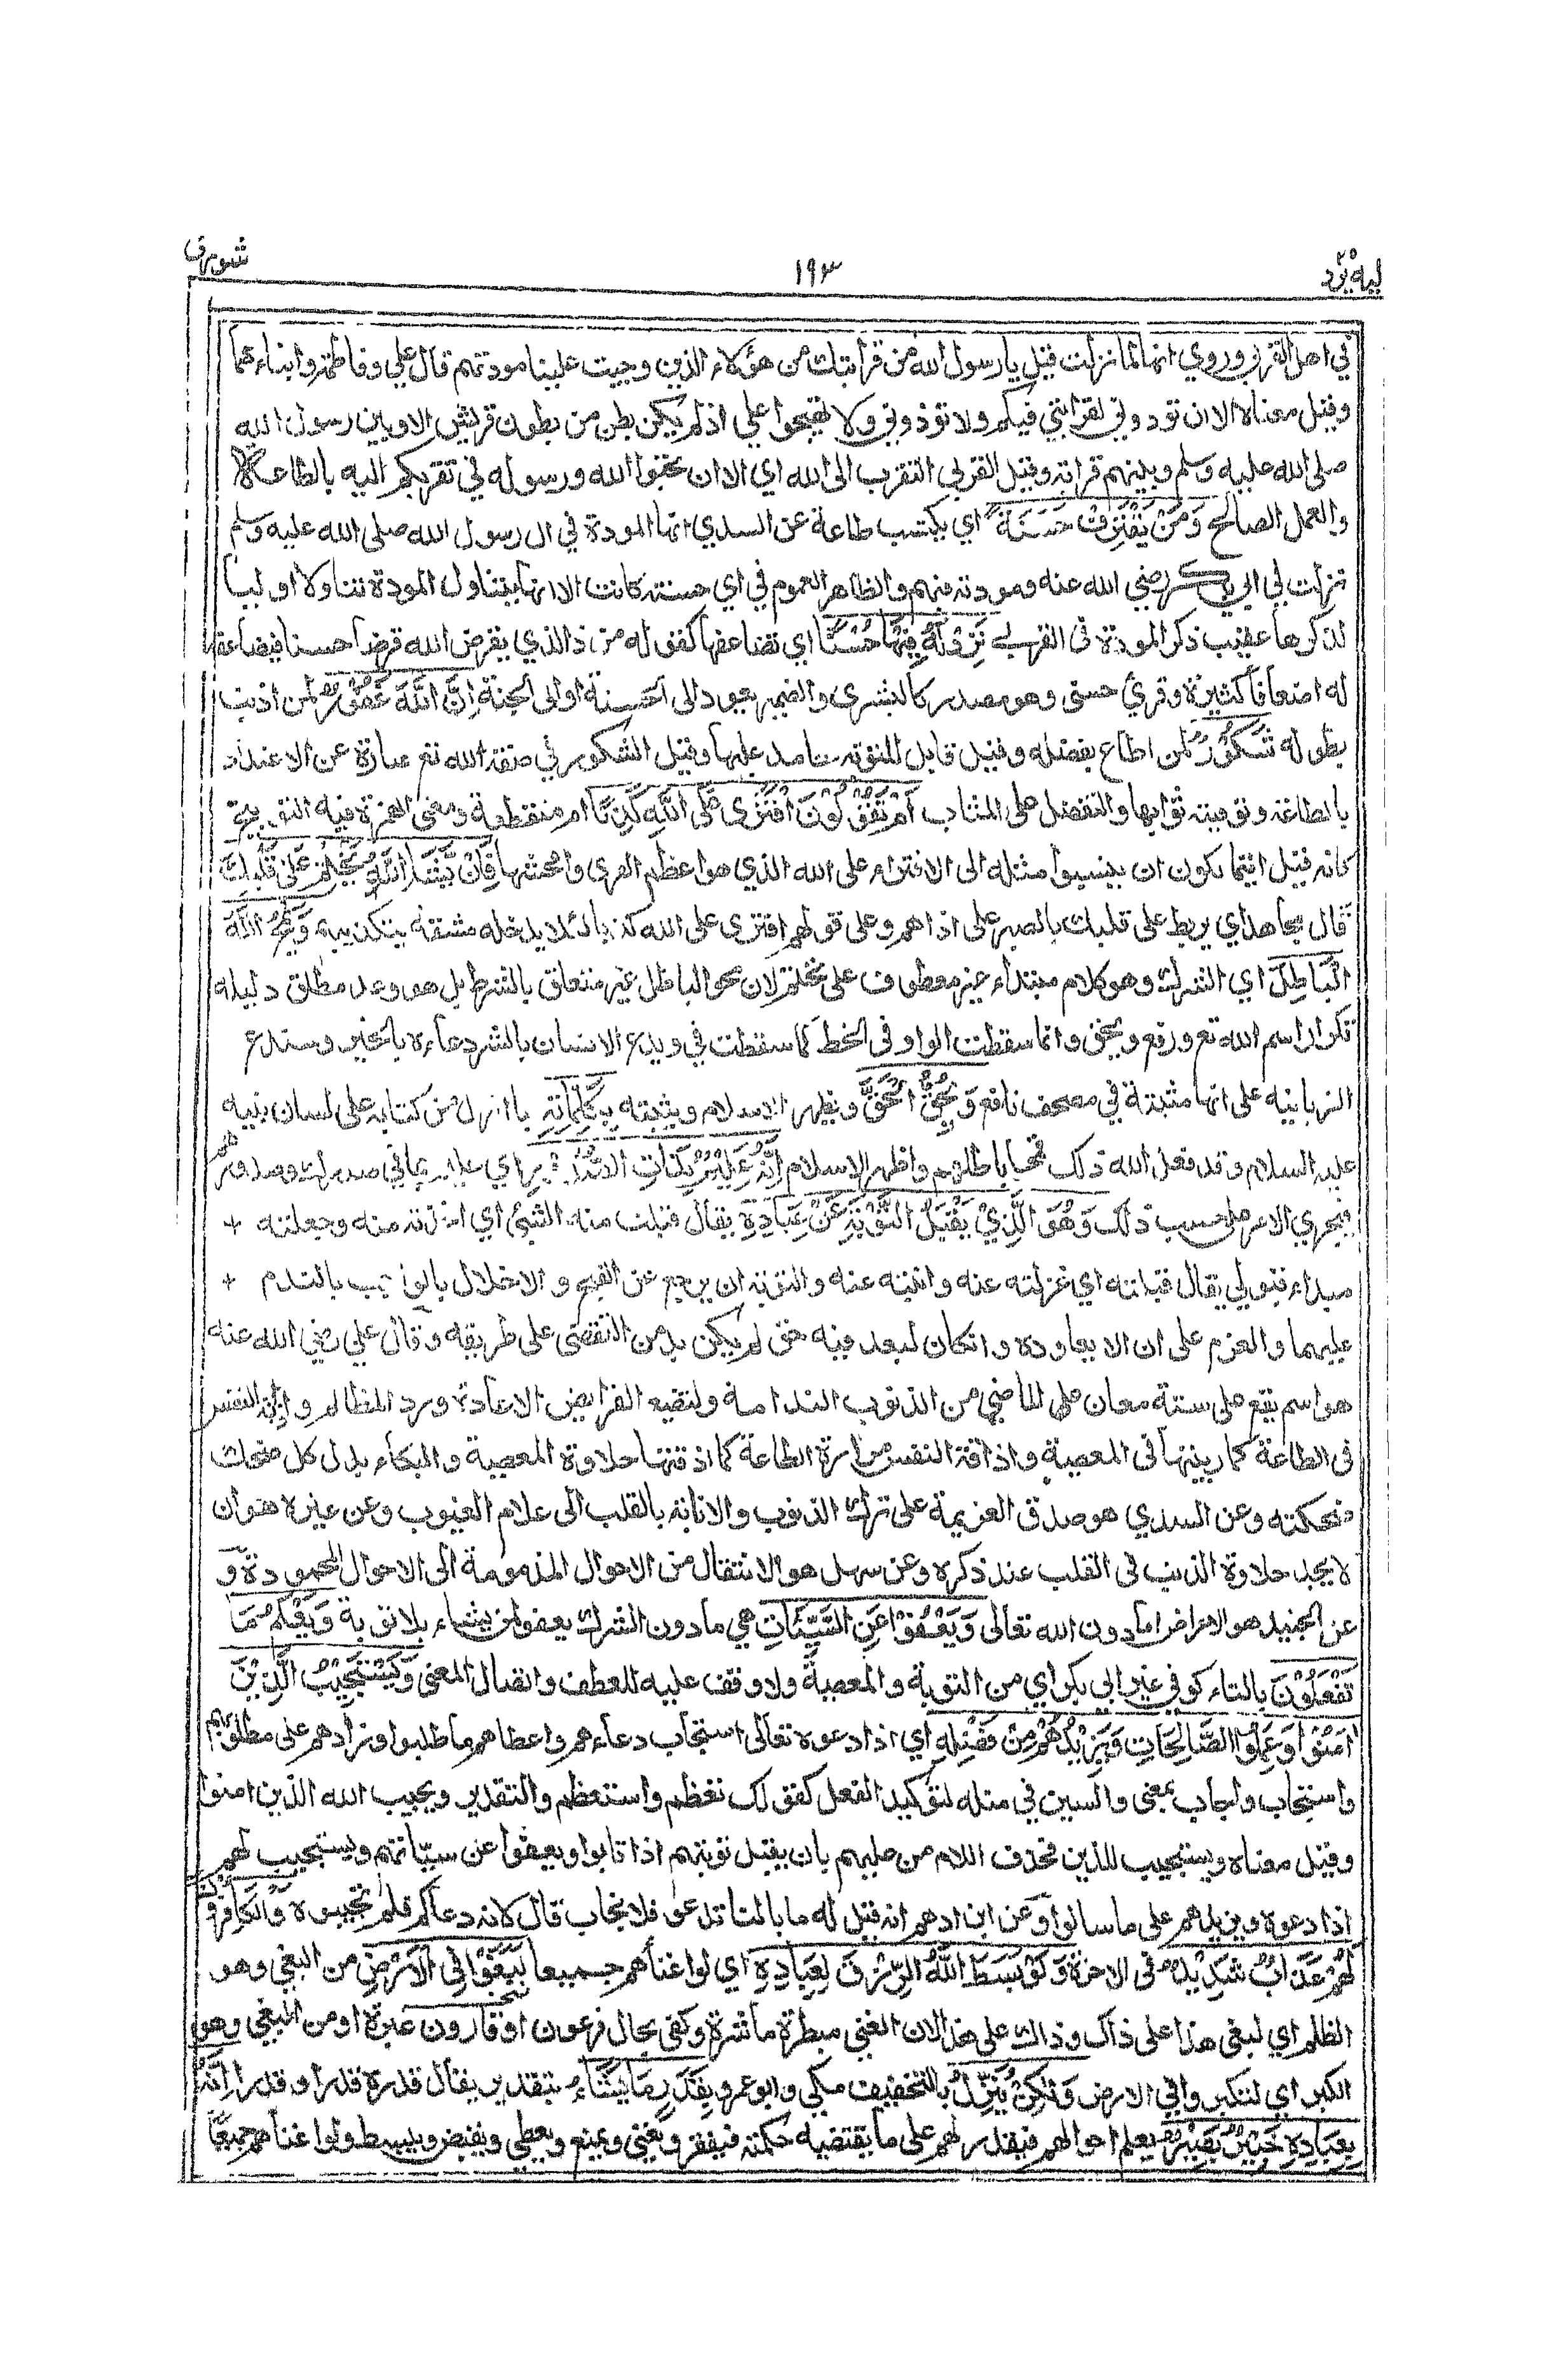 اليه يرد ١٩٣ شورى
في اهل القربى وروي انها لما نزلت قيل يا رسول الله من قرابتك من هؤلاء الذين وجبت علينا مودتهم قال علي وفاطمة وابناءهما
وقيل معناه الا ان تودوني لقرابتي فيكم ولا تؤذوني ولا تهيجوا علي اذ لم يكن بطن من بطون قريش الا وبين رسول الله
صلى الله عليه وسلم وبينهم قرابة وقيل القربى التقرب الى الله اي الا ان تحبوا الله ورسوله في تقربكم اليه بالطاعة
والعمل الصالح وَمَنْ يَقْتَرِفْ حَسَنَةً اي يكتسب طاعة عن السدي انها المودة في ال رسول الله صلى الله عليه وسلم
نزلت في ابي بكر رضي الله عنه ومودته فيهم والظاهر العموم في اي حسنة كانت الا انها يتناول المودة تناولا اوليا
لذكرها عقيب ذكر المودة في القربى نَزِدْ لَهُ فِيْهَا حُسْنًا اي نضاعفها كقوله من ذا الذي يقرض الله قرضا حسنا فيضاعفه
له اضعافا كثيرة وقرئ حسنى وهو مصدر كالبشرى والضمير يعود الى الحسنة او الى الجنة اِنَّ اللّٰهَ غَفُوْرٌ لمن اذنب
بطوله شَكُوْرٌ لمن اطاع بفضله وقيل قابل للتوبة حامل عليها وقيل الشكور في صفة الله تع عبارة عن الاعتداد
بالطاعة وتوفية ثوابها والتفضل على المثاب اَمْ يَقُوْلُوْنَ افْتَرٰى عَلَى اللّٰهِ كَذِبًا ام منقطعة ومعنى الهمزة فيه التوبيخ
كانه قيل ايتمالكون ان ينسبوا مثله الى الافتراء على الله الذي هو اعظم الفرى وافحشها فَاِنْ يَّشَاِ اللّٰهُ يَخْتِمْ عَلٰى قَلْبِكَ
قال مجاهد اي يربط على قلبك بالصبر على اذاهم وعلى قولهم افترى على الله كذبا لئلا يدخله مشقة بتكذيبهم وَيَمْحُ اللّٰهُ
الْبَاطِلَ اي الشرك وهو كلام مبتداء غير معطوف على يختم لان محو الباطل غير متعلق بالشرط بل هو وعد مطلق دليله
تكرار اسم الله تع ورفع ويحق وانما سقطت الواو في الخط كما سقطت في ويدع الانسان بالشر دعاءه بالخير وسندع
الزبانيه على انها مثبتة في مصحف نافع وَيُحِقُّ الْحَقَّ ويظهر الاسلام ويثبته بِكَلِمَاتِهٖ بما انزل من كتابه على لسان نبيه
عليه السلام وقد فعل الله ذلك فمحا باطلهم واظهر الاسلام اِنَّهٗ عَلِيْمٌ بِذَاتِ الصُّدُوْرِ اي عليم بما في صدرك وصدورهم
فيجري الامر على حسب ذلك وَهُوَ الَّذِيْ يَقْبَلُ التَّوْبَةَ عَنْ عِبَادِهٖ يقال قبلت منه الشيئ اي اخذته منه وجعلته +
مبداء قبولي يقال قبلته اي عزلته عنه وابنته عنه والتوبة ان يرجع عن القبيح والاخلال بالواجب بالندم +
عليهما والعزم على ان لا يعاوده وان كان لعبد فيه حق لم يكن بد من التفصى على طريقه وقال علي رضي الله عنه
هو اسم يقع على ستة معان على الماضي من الذنوب الندامة ولتضيع الفرايض الاعادة ورد المظالم واذابة النفس
في الطاعة كما ربيتها في المعصية واذاقة النفس مرارة الطاعة كما اذقتها حلاوة المعصية والبكاء بدل كل ضحك
ضحكته وعن السدي هو صدق العزيمة على ترك الذنوب والانابة بالقلب الى علام الغيوب وعن غيره هو ان
لا يجد حلاوة الذنب في القلب عند ذكره وعن سهل هو الانتقال من الاحوال المذمومة الى الاحوال المحمودة و
عن الجنيد هو الاعراض عما دون الله تعالى وَيَعْفُوْا عَنِ السَّيِّئَاتِ هي ما دون الشرك يعفو لمن يشاء بلا توبة وَيَعْلَمُ مَا
تَفْعَلُوْنَ بالتاء كوفي غير ابي بكر اي من التوبة والمعصية ولا وقف عليه للعطف واتصال المعنى وَيَسْتَجِيْبُ الَّذِيْنَ
اٰمَنُوْا وَعَمِلُوا الصَّالِحَاتِ وَيَزِيْدُهُمْ مِنْ فَضْلِهٖ اي اذا دعوه تعالى استجاب دعاءهم واعطاهم ما طلبوا وزادهم على مطلوبهم
واستجاب واجاب بمعنى والسين في مثله لتوكيد الفعل كقولك تعظم واستعظم والتقدير ويجيب الله الذين امنوا
وقيل معناه ويستجيب للذين فحذف اللام من عليهم بان يقبل توبتهم اذا تابوا ويعفوا عن سيّاتهم ويستجيب لهم
اذا دعوه ويزيدهم على ما سالوا وعن ابن ادهم انه قيل له ما بالنا ندعو فلا نجاب قال لانه دعاكم فلم تجيبوه وَالْكَافِرُوْنَ
لَهُمْ عَذَابٌ شَدِيْدٌ في الاخرة وَلَوْ بَسَطَ اللّٰهُ الرِّزْقَ لِعِبَادِهٖ اي لو اغناهم جميعا لَبَغَوْا فِي الْاَرْضِ من البغي وهو
الظلم اي لبغى هذا على ذاك وذاك على هذا لان الغنى مبطرة ماشرة وكفى بحال فرعون او قارون عبرة او من البغي وهو
الكبر اي لتكبروا في الارض وَلٰكِنْ يُنَزِّلُ بالتخفيف مكي وابو عمرو بِقَدَرٍ مَا يَشَاءُ بتقدير يقال قدره قدرا وقدرا اِنَّهٗ
بِعِبَادِهٖ خَبِيْرٌ بَصِيْرٌ يعلم احوالهم فيقدر لهم على ما يقتضيه حكمته فيفقر ويغني ويمنع ويعطي ويقبض ويبسط ولو اغناهم جميعًا